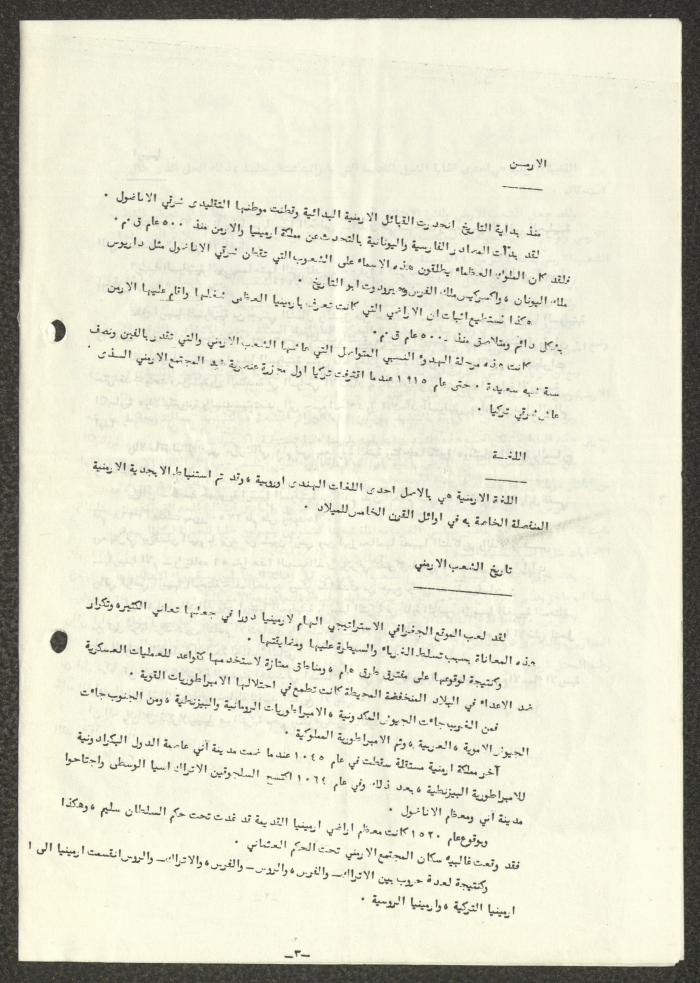 الارمن
منذ بداية التاريخ انحدرت القبائل الارمنية البدائية وقطنت موطنها التقليدى شرقي الاناضول .
لقد بدأت المصادر الفارسية واليونانية بالتحدث عن مملكة ارمينيا والارمن منذ ٥٠٠ عام ق.م.
فلقد كان الملوك العظماء يطلقون هذه الاسماء على الشعوب التي تقطن شرقي الاناضول مثل داريوس
ملك اليونان ، واكسركيس ملك الفرس وهيرودوت ابو التاريخ .
هكذا نستطيع اثبات ان الاراضي التي كانت تعرف بارمينيا العظمى شغلها واقام عليها الارمن
بشكل دائم ومتلاصق منذ ٥٠٠ عام ق.م.
كانت هذه مرحلة الهدوء النسبي المتواصل التي عاشها الشعب الارمني والتي تقدر بالفين ونصف
سنة شبه سعيدة . حتى عام ١٩١٥ عندما اقترفت تركيا اول مجزرة عنصرية ضد المجتمع الارمني السذى
عاش شرقي تركيا .
اللغة
اللغة الارمنية هي بالاصل احدى اللغات الهندى اوروبية ، وقد تم استنباط الابجدية الارمنية
المنفصلة الخاصة به في اوائل القرن الخامس للميلاد .
تاريخ الشعب الارمني
لقد لعب الموقع الجغرافي الاستراتيجي الهام لارمينيا دورا في جعلها تعاني الكثير، وتكرار
هذه المعاناة بسبب تسلط الغرباء والسيطرة عليها ومضايقتها .
وكنتيجة لوقوعها على مفترق طرق هام ، ومناطق ممتازة لاستخدمها كقواعد للعمليات العسكرية
ضد الاعداء في البلاد المنخفضة المحيطة كانت تطمع في احتلالها الامبراطوريات القوية .
فمن الغرب جاءت الجيوش المكدونية ، الامبراطوريات الرومانية والبيزنطية ، ومن الجنوب جاءت
الجيوش الاموية ، العربية ، وثم الامبراطورية المملوكية .
آخر مملكة ارمنية مستقلة سقطت في عام ١٠٤٥ عندما ضمت مدينة آني عاصمة الدول البكرادونية
للامبراطورية البيزنطية ، بعد ذلك وفي عام ١٠٦٤ اكتسح السلجوقين الاتراك اسيا الوسطى واجتاحوا
مدينة آني ومعظم الاناضول .
وبوقوع عام ١٥٢٠ كانت معظم اراضي ارمينيا القديمة قد غدت تحت حكم السلطان سليم ، وهكذا
فقد وقعت غالبية سكان المجتمع الارمني تحت الحكم العثماني .
وكنتيجة لعدة حروب بين الاتراك_ والفرس ، والروس_ والفرس ، والاتراك_ والروس انقسمت ارمينيا الى ا
ارمينيا التركية ، وارمينيا الروسية .
_٣_